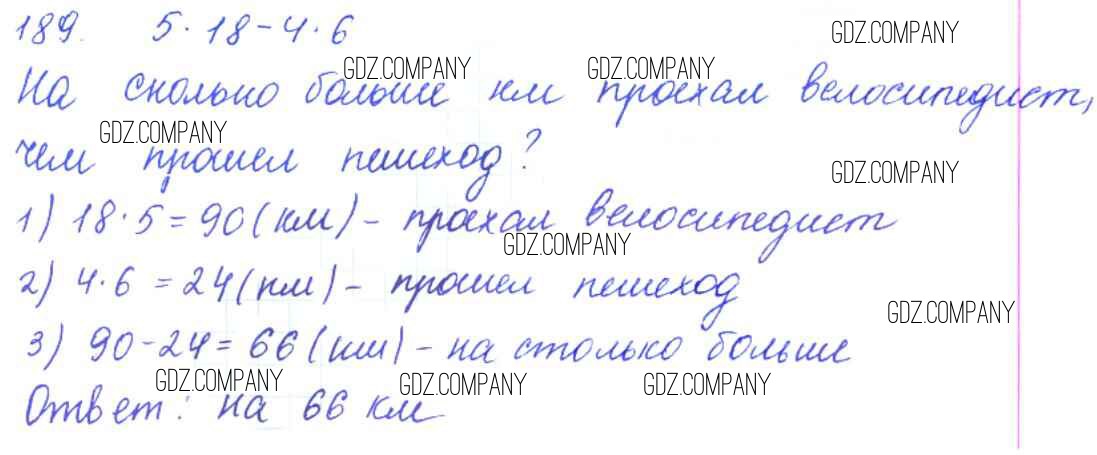 189. 5·18-4·6
GDZ.COMPANY
GDZ.COMPANY GDZ.COMPANY
На сколько больше км проехал велосипедист,
GDZ.COMPANY
чем прошел пешеход?
GDZ.COMPANY
1) 18·5=90(км)- проехал велосипедист
GDZ.COMPANY
2) 4·6=24(км)- прошел пешеход
GDZ.COMPANY
3) 90-24=66(км)- на столько больше
GDZ.COMPANY GDZ.COMPANY GDZ.COMPANY
Ответ: на 66 км